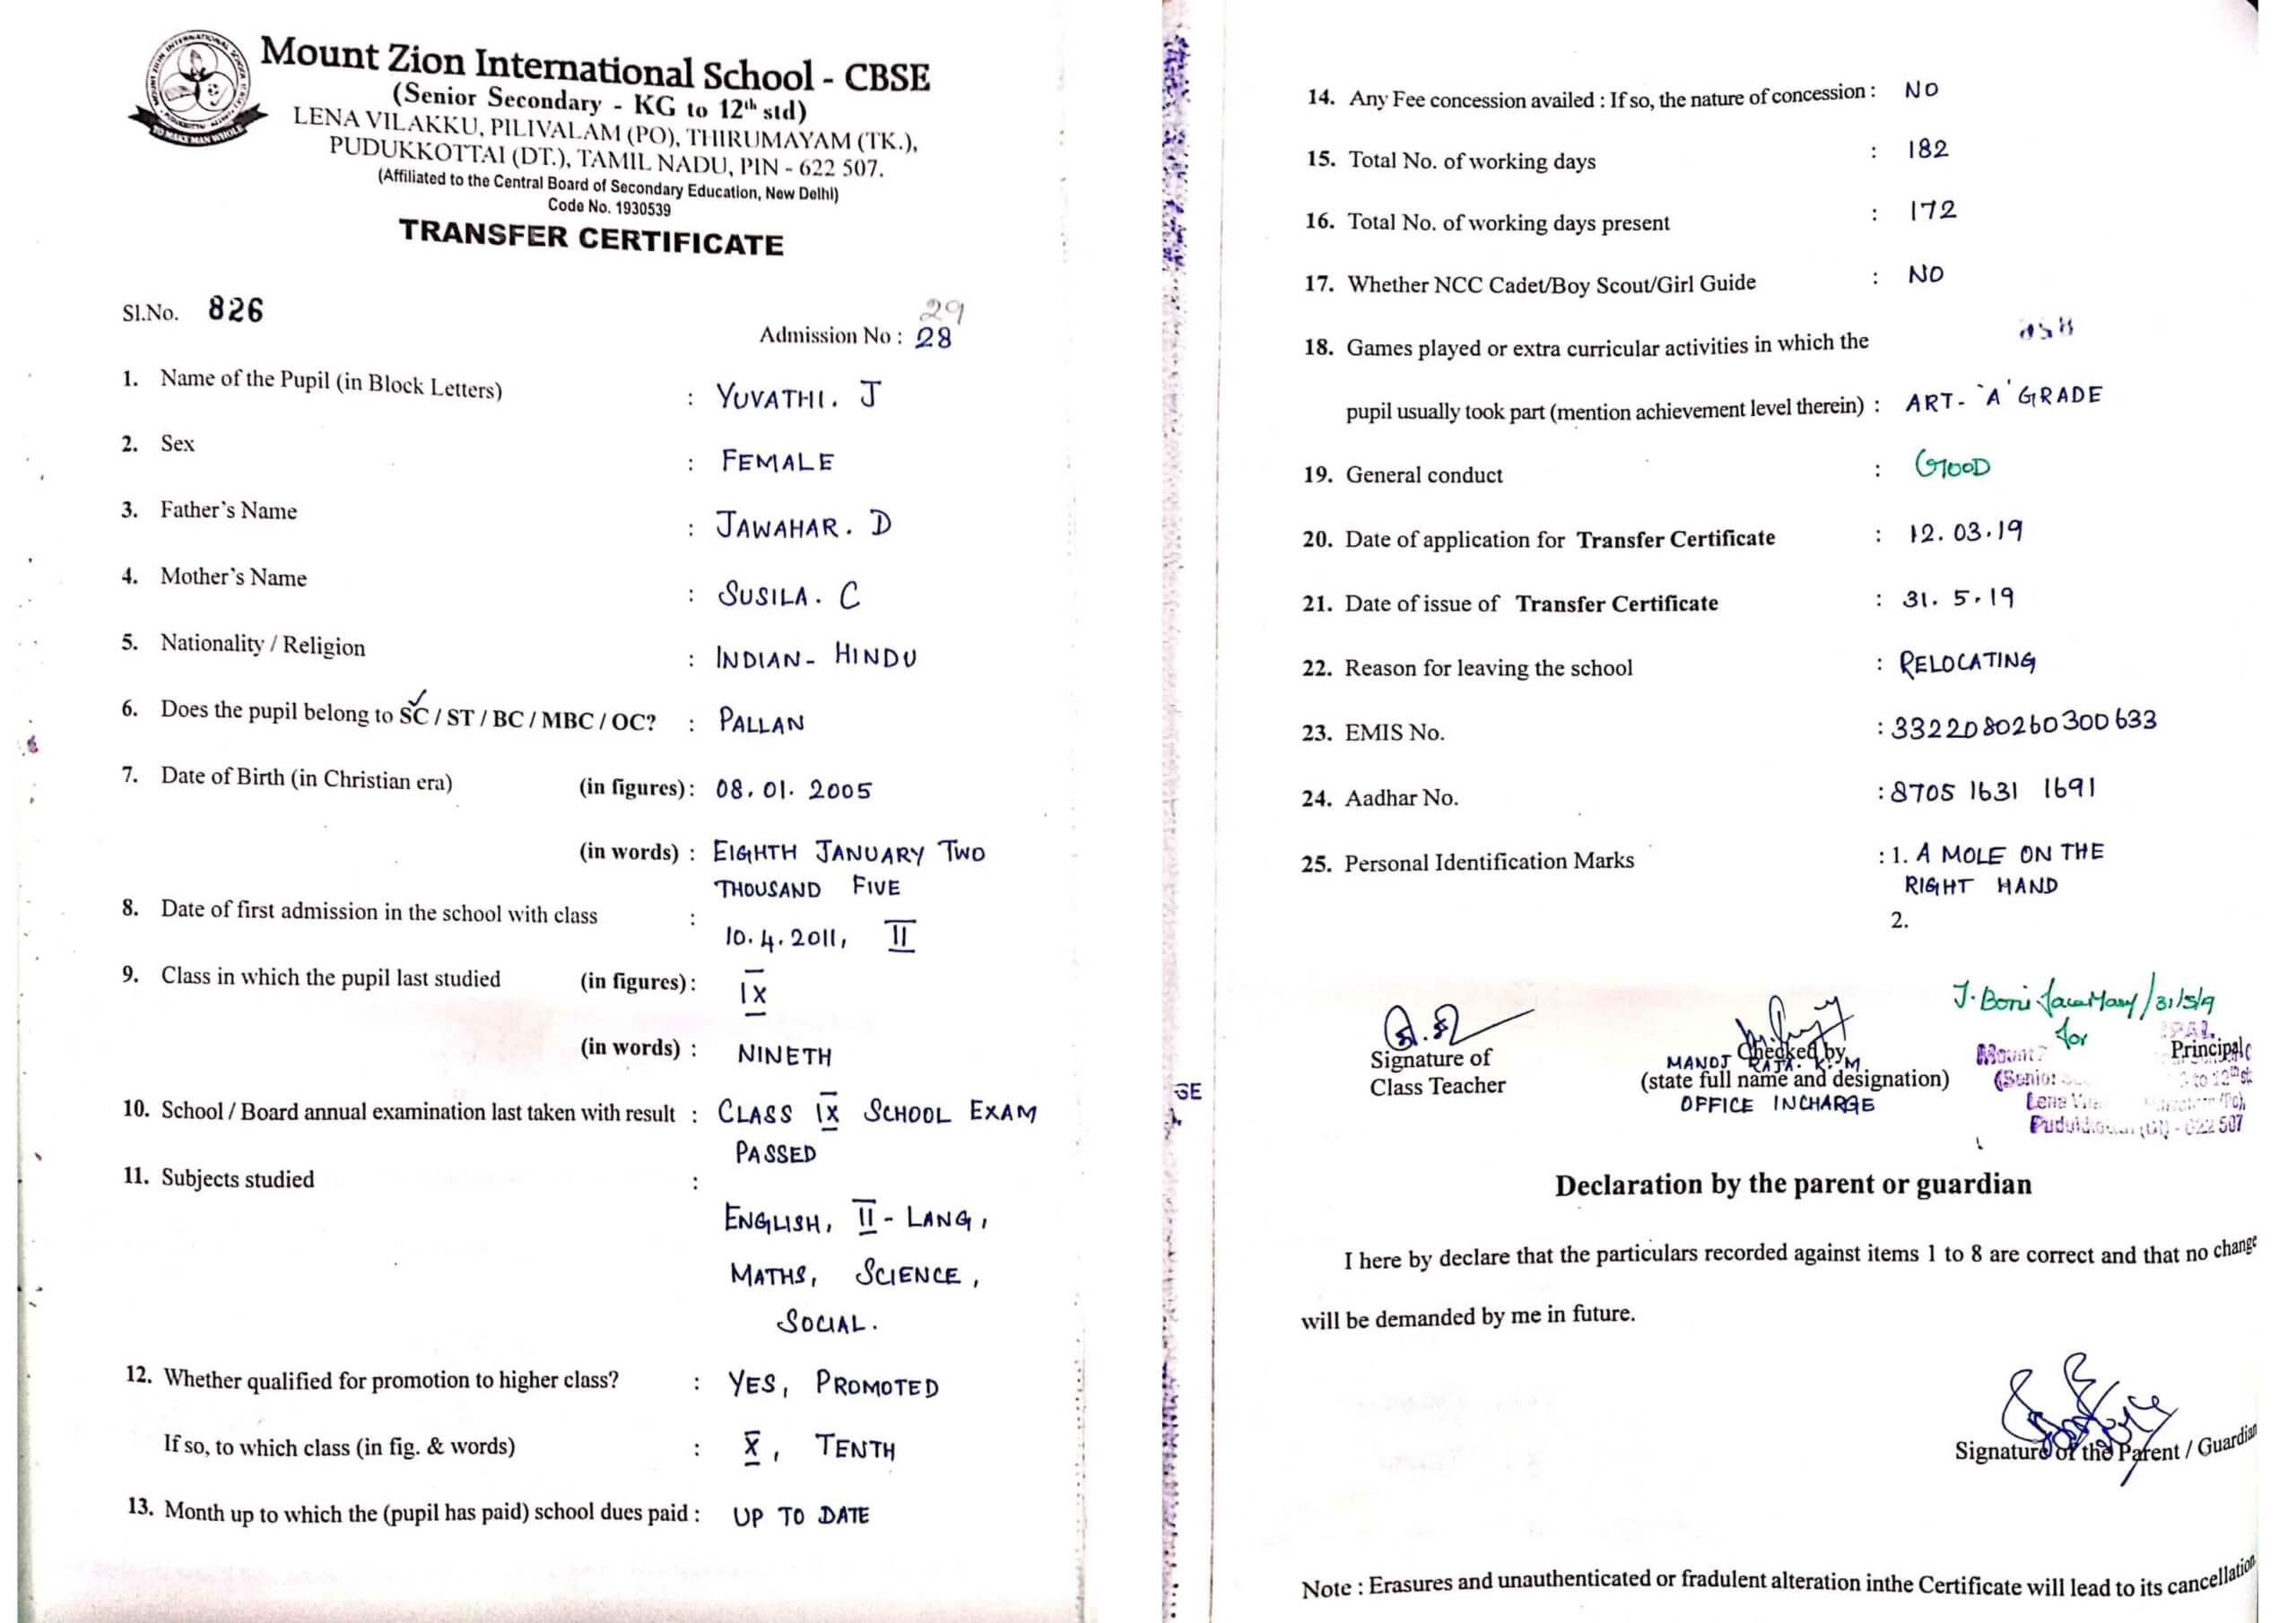 Mount Zion International School - CBSE
(Senior Secondary - KG to 12th std)
LENA VILAKKU, PILIVALAM (PO), THIRUMAYAM (TK.),
PUDUKKOTTAI (DT.), TAMIL NADU, PIN - 622 507.
(Affiliated to the Central Board of Secondary Education, New Delhi)
Code No. 1930539
TO MAKE MAN WHOLE
TRANSFER CERTIFICATE
29
Sl.No. 826 Admission No : 28
1. Name of the Pupil (in Block Letters) : YUVATHI. J
2. Sex : FEMALE
3. Father's Name : JAWAHAR. D
4. Mother's Name : SUSILA. C
5. Nationality / Religion : INDIAN - HINDU
6. Does the pupil belong to SC / ST / BC / MBC / OC? : PALLAN
7. Date of Birth (in Christian era) (in figures) : 08. 01. 2005
(in words) : EIGHTH JANUARY TWO
THOUSAND FIVE
8. Date of first admission in the school with class :
10. 4. 2011, II
9. Class in which the pupil last studied (in figures) : IX
(in words) : NINETH
10. School / Board annual examination last taken with result : CLASS IX SCHOOL EXAM
PASSED
11. Subjects studied :
ENGLISH, II - LANG,
MATHS, SCIENCE,
SOCIAL.
12. Whether qualified for promotion to higher class? : YES, PROMOTED
If so, to which class (in fig. & words) : X, TENTH
13. Month up to which the (pupil has paid) school dues paid : UP TO DATE
14. Any Fee concession availed : If so, the nature of concession : NO
15. Total No. of working days : 182
16. Total No. of working days present : 172
17. Whether NCC Cadet/Boy Scout/Girl Guide : NO
18. Games played or extra curricular activities in which the
pupil usually took part (mention achievement level therein) : ART - 'A' GRADE
19. General conduct : GOOD
20. Date of application for Transfer Certificate : 12. 03. 19
21. Date of issue of Transfer Certificate : 31. 5. 19
22. Reason for leaving the school : RELOCATING
23. EMIS No. : 3322080260300633
24. Aadhar No. : 8705 1631 1691
25. Personal Identification Marks : 1. A MOLE ON THE
RIGHT HAND
2.
for
Signature of
Class Teacher
Checked by
MANOJ RAJA. K. M
(state full name and designation)
OFFICE INCHARGE
Principal
622 507
GE
Declaration by the parent or guardian
I here by declare that the particulars recorded against items 1 to 8 are correct and that no change
will be demanded by me in future.
Signature of the Parent / Guardian
Note : Erasures and unauthenticated or fradulent alteration inthe Certificate will lead to its cancellation